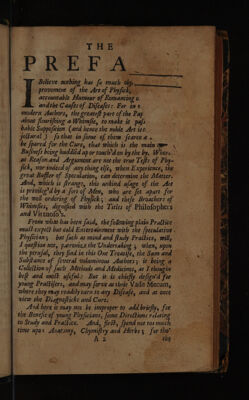 THE
PREFA
I Believe nothing has so much
provement of the Art of Physick,
accountable Humour of Romancing
and the Causes of Diseases: For in
modern Authors, the greatest part of the Pag
about flourishing a Whimsie, to make it pass
bable Supposition (and hence the noble Art is
jectural) so that in some of them scarce a
be spared for the Cure, that which is the main
Business being huddled up or touch'd on by the by. Where-
as Reason and Argument are not the true Tests of Phy-
sick, nor indeed of any thing else, when Experience, the
great Baffler of Speculation, can determine the Matter.
And, which is strange, this unkind usage of the Art
is promoted by a sort of Men, who are set apart for
the well ordering of Physick; and these Broachers of
Whimsies, dignified with the Titles of Philosophers
and Virtuoso's.
From what has been said, the following plain Practice
must expect but cold Entertainment with the speculative
Physician; but such as mind and study Practice, will,
I question not, patronize the Undertaking; when, upon
the perusal, they find in this One Treatise, the Sum and
Substance of several voluminous Authors; it being a
Collection of such Methods and Medicines, as I thought
best and most useful: But it is chiefly design'd for
young Practisers, and may serve as their Vade Mecum,
where they may readily turn to any Disease, and at once
view the Diagnosticks and Cure.
And here it may not be improper to add briefly, for
the Benefit of young Physicians, some Directions relating
to Study and Practice. And, first, spend not too much
time upon Anatomy, Chymistry and Herbs; for tho'
A 2